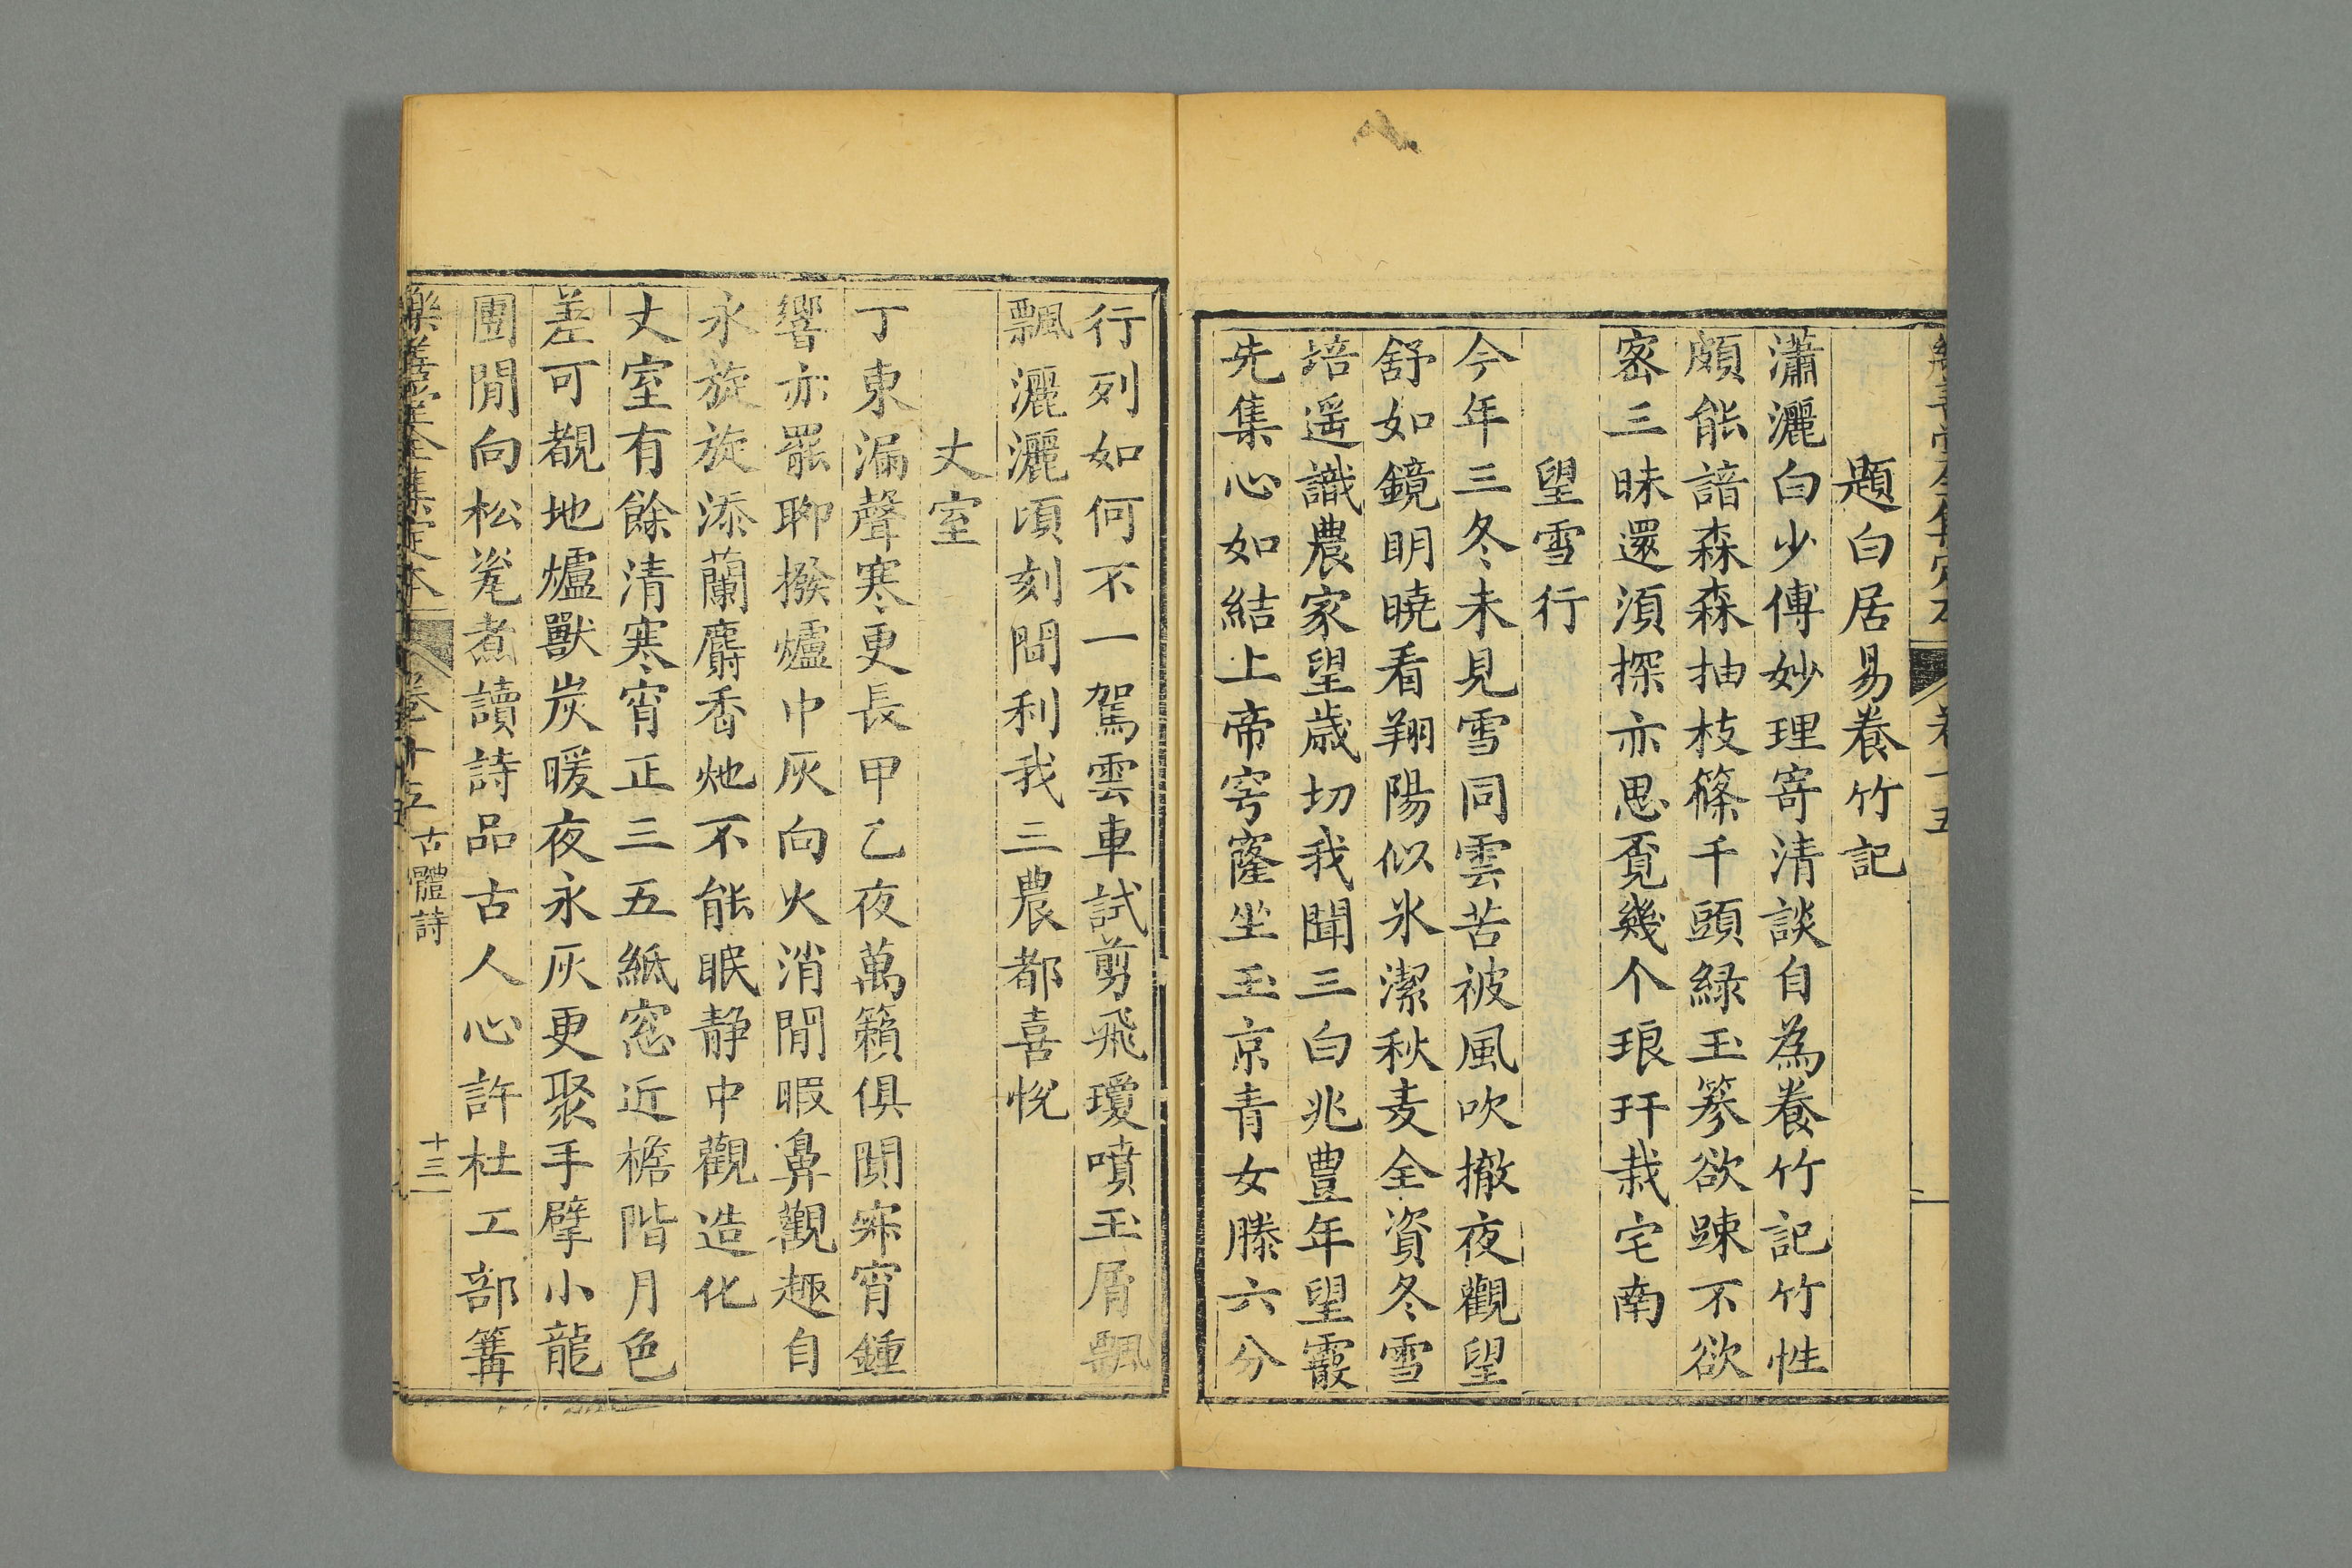 題白居易養竹記
瀟灑白少傅妙理寄清談自為養竹記竹性
頗能諳森森抽枝篠千頭綠玉篸欲踈不欲
宻三昧還湏探亦思覔幾个琅玕栽宅南
望雪行
今年三冬未見雪同雲苦被風吹撤夜觀望
舒如鏡明曉看翔陽似氷潔秋麦全資冬雪
培遥識農家望歳切我聞三白兆豊年望霰
先集心如結上帝穹窿坐玉京青女滕六分
行列如何不一駕雲車試剪飛瓊噴玉屑飄
飄灑灑頃刻間利我三農都喜悅
丈室
丁東漏聲寒更長甲乙夜萬籟俱闃寂宵鍾
響亦罷聊撥爐中灰向火消閒暇鼻觀趣自
永旋旋添蘭麝香灺不能眠静中觀造化
丈室有餘清寒宵正三五紙窓近檐階月色
差可覩地爐獸炭暖夜永灰更聚手擘小龍
團閒向松瓮煮讀詩品古人心許杜工部篝
樂善堂全集定本 卷十五 古體詩 十三